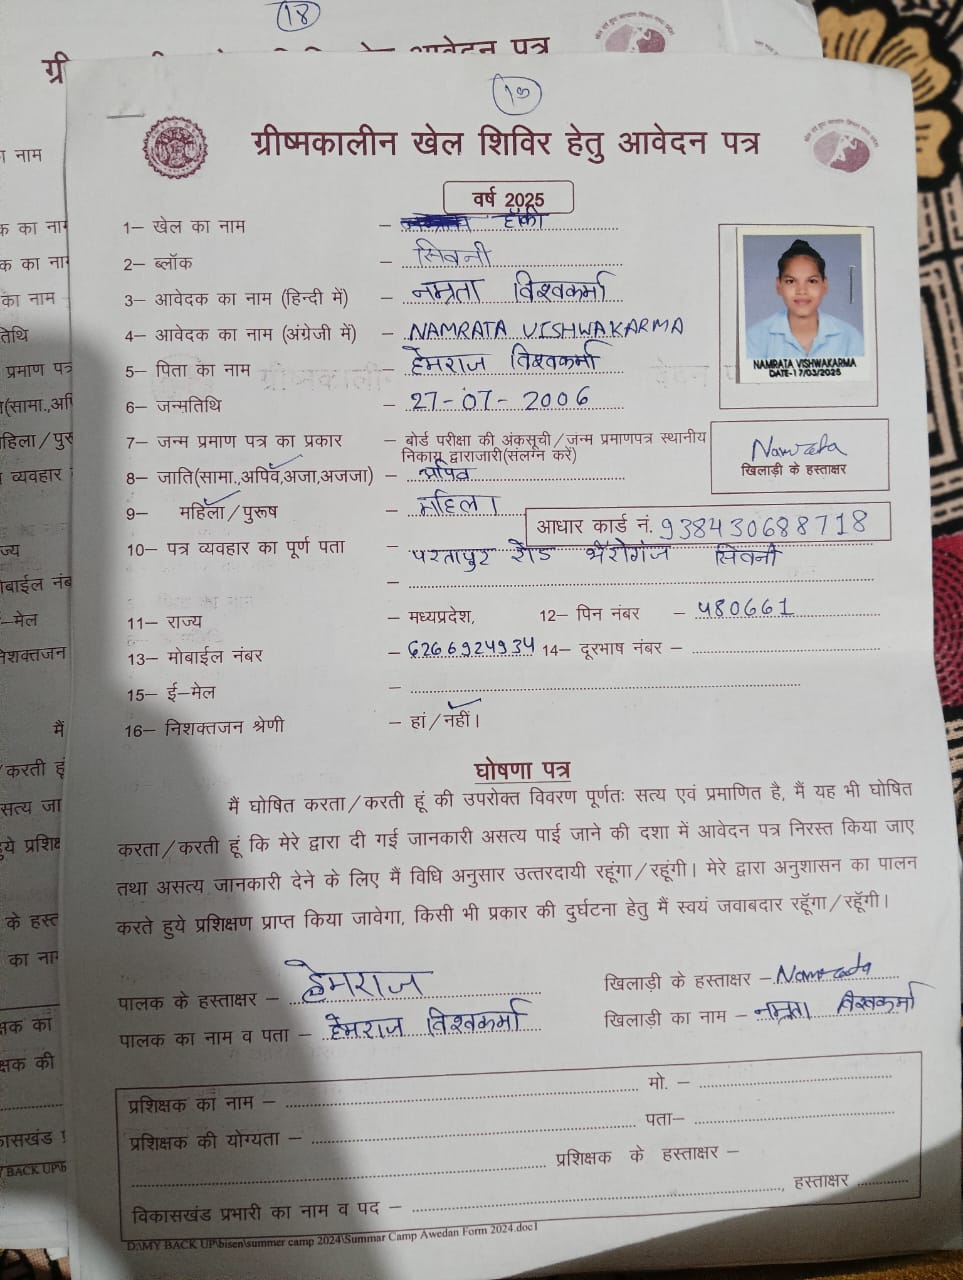 18
आवेदन पत्र
19
ग्रीष्मकालीन खेल शिविर हेतु आवेदन पत्र
वर्ष 2025
1– खेल का नाम – हॉकी
2– ब्लॉक – सिवनी
3– आवेदक का नाम (हिन्दी में) – नम्रता विश्वकर्मा
4– आवेदक का नाम (अंग्रेजी में) – NAMRATA VISHWAKARMA
5– पिता का नाम – हेमराज विश्वकर्मा
6– जन्मतिथि – 27-07-2006
NAMRATA VISHWAKARMA
DATE-17/03/2025
7– जन्म प्रमाण पत्र का प्रकार – बोर्ड परीक्षा की अंकसूची/जन्म प्रमाणपत्र स्थानीय
निकाय द्वाराजारी(संलग्न करें)
Namrata
खिलाड़ी के हस्ताक्षर
8– जाति(सामा.,अपिव,अजा,अजजा) – अपिव
9– महिला/पुरूष – महिला
आधार कार्ड नं. 938430688718
10– पत्र व्यवहार का पूर्ण पता – परतापुर रोड भैरोगंज सिवनी
11– राज्य – मध्यप्रदेश, 12– पिन नंबर – 480661
13– मोबाईल नंबर – 6266924934 14– दूरभाष नंबर –
15– ई–मेल –
16– निशक्तजन श्रेणी – हां/नहीं।
घोषणा पत्र
मैं घोषित करता/करती हूं की उपरोक्त विवरण पूर्णतः सत्य एवं प्रमाणित है, मैं यह भी घोषित
करता/करती हूं कि मेरे द्वारा दी गई जानकारी असत्य पाई जाने की दशा में आवेदन पत्र निरस्त किया जाए
तथा असत्य जानकारी देने के लिए मैं विधि अनुसार उत्तरदायी रहूंगा/रहूंगी। मेरे द्वारा अनुशासन का पालन
करते हुये प्रशिक्षण प्राप्त किया जावेगा, किसी भी प्रकार की दुर्घटना हेतु मैं स्वयं जवाबदार रहूँगा/रहूँगी।
पालक के हस्ताक्षर – हेमराज खिलाड़ी के हस्ताक्षर – Namrata
पालक का नाम व पता – हेमराज विश्वकर्मा खिलाड़ी का नाम – नम्रता विश्वकर्मा
प्रशिक्षक का नाम – मो. –
प्रशिक्षक की योग्यता – पता–
प्रशिक्षक के हस्ताक्षर –
विकासखंड प्रभारी का नाम व पद – , हस्ताक्षर
D:\MY BACK UP\bisen\summer camp 2024\Summar Camp Awedan Form 2024.doc1